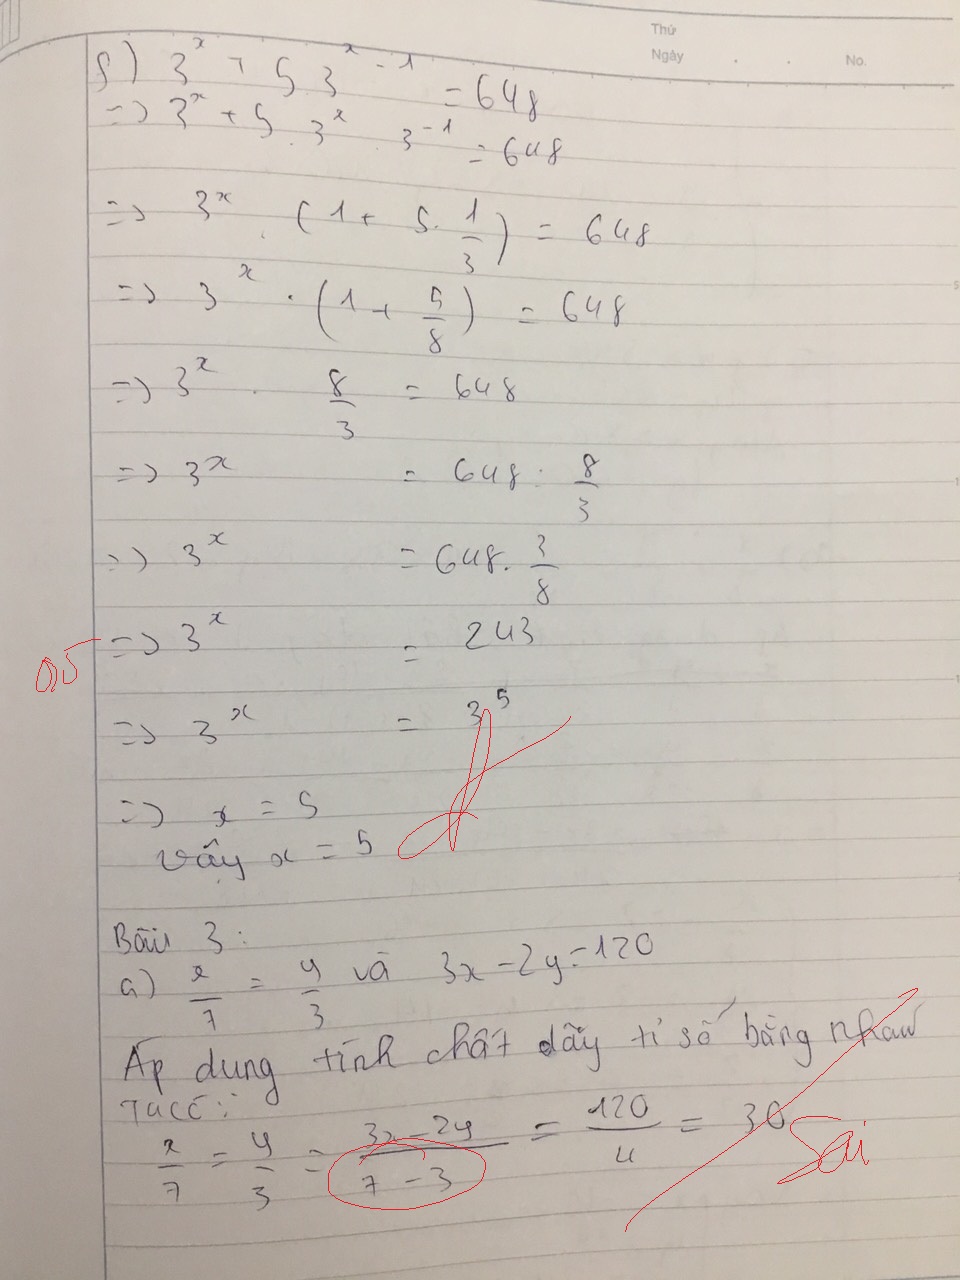 Thứ
Ngày . . No.
f) 3^x + 5 3^{x-1} = 648
=> 3^x + 5 . 3^x 3^{-1} = 648
=> 3^x . (1 + 5 . 1/3) = 648
=> 3^x . (1 + 5/8) = 648
=> 3^x . 8/3 = 648
=> 3^x = 648 : 8/3
=> 3^x = 648 . 3/8
0,5 => 3^x = 243
=> 3^x = 3^5
=> x = 5
Vậy x = 5
Bài 3:
a) x/7 = y/3 và 3x - 2y = 120
Áp dụng tính chất dãy tỉ số bằng nhau
Ta có:
x/7 = y/3 = (3x - 2y)/(7 - 3) = 120/4 = 30 Sai